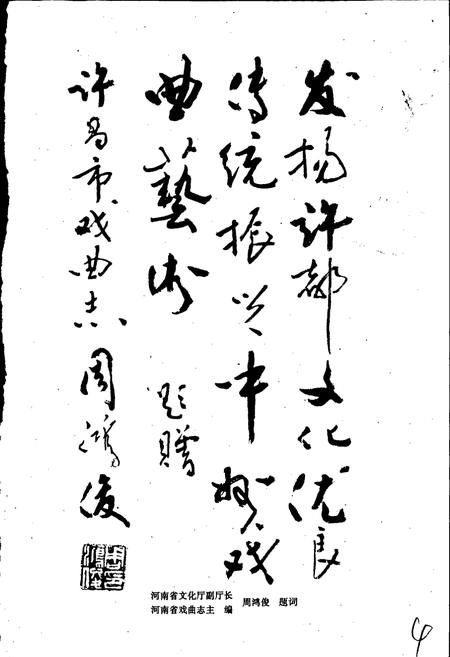 发扬许都文化优良
传统振兴中州戏
曲藝術 题赠
许昌市戏曲志 周鸿俊
河南省文化厅副厅长
河南省戏曲志主 编
周鸿俊 题词
4